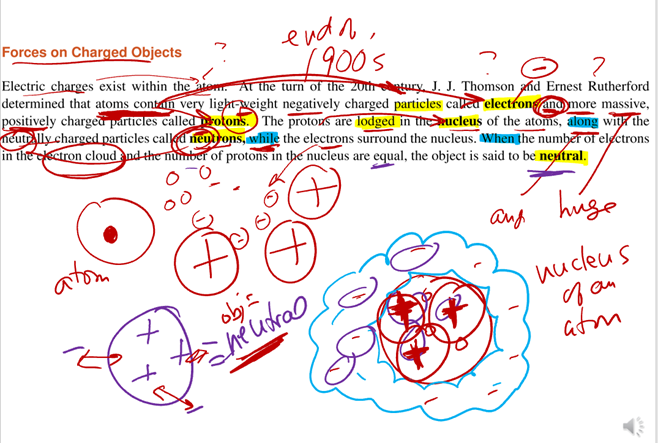 end of
1900s
Forces on Charged Objects
? ? ?
Electric charges exist within the atom. At the turn of the 20th century, J. J. Thomson and Ernest Rutherford
determined that atoms contain very light-weight negatively charged particles called electrons and more massive,
positively charged particles called protons. The protons are lodged in the nucleus of the atoms, along with the
neutrally charged particles called neutrons, while the electrons surround the nucleus. When the number of electrons
in the electron cloud and the number of protons in the nucleus are equal, the object is said to be neutral.
and huge
atom
nucleus
of an
atom
obj =
= neutral